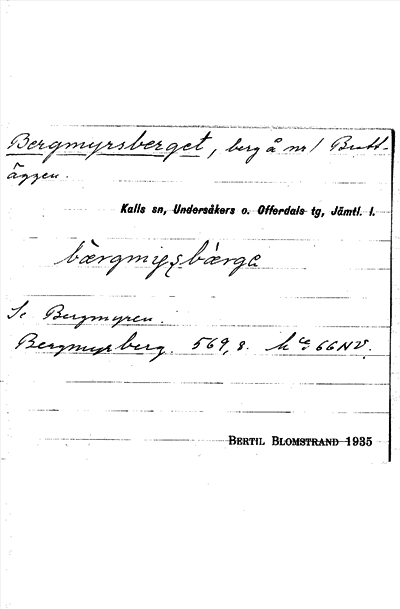 Bergmyrsberget, berg å nr 1 Bratt-
äggen.
Kalls sn, Undersåkers o. Offerdals tg, Jämtl. l.
Se Bergmyren.
Bergmyrberg. 569,8. 66NV.
BERTIL BLOMSTRAND 1935